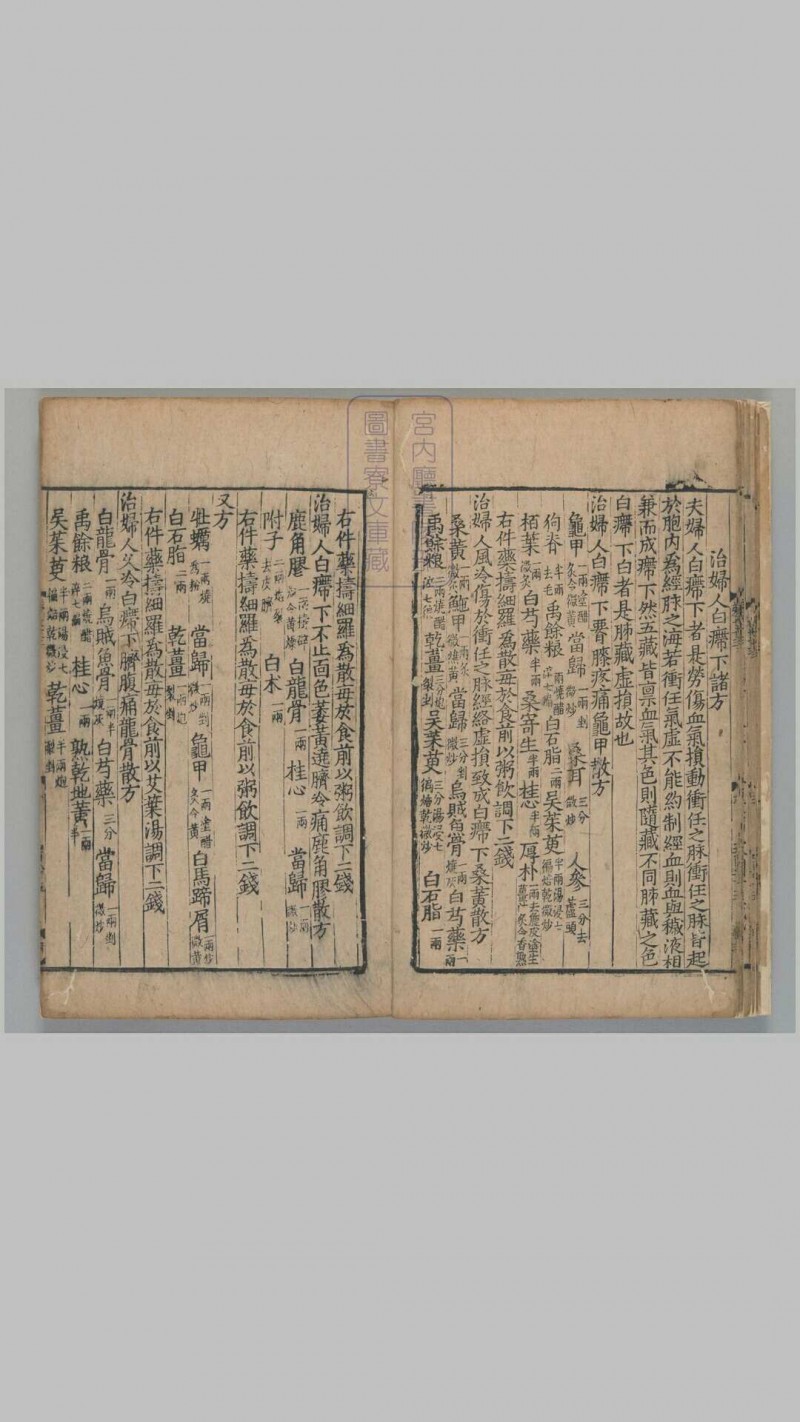 治婦人白㿃下諸方
夫婦人白㿃下者是勞傷血氣損動衝任之脉衝任之脉皆起
於胞內為經脉之海若衝任氣虛不能約制經血則血與穢液相
兼而成㿃下然五藏皆禀血氣其色則隨藏不同肺藏之色
白㿃下白者是肺藏虛損故也
治婦人白㿃下腰膝疼痛龜甲散方
龜甲一兩塗醋炙令微黃 當歸一兩剉微炒 桑耳三分微炒 人參三分去蘆頭
狗脊半兩去毛 禹餘粮一兩燒醋淬七遍 白石脂一兩 吳茱萸半兩湯浸七遍焙乾微炒
栢葉一兩微炙 白芍藥半兩 桑寄生半兩 桂心半兩 厚朴一兩去麤皮塗生薑汁炙令香熟
右件藥擣細羅為散每於食前以粥飲調下二錢
治婦人風冷傷於衝任之脉經絡虛損致成白㿃下桑黃散方
桑黃一兩微炙 鮑甲一兩炙微黃 當歸三分剉微炒 烏賊魚骨一兩燒灰 白芍藥一兩
禹餘粮二兩燒醋淬七遍 乾薑三分炮裂剉 吳茱萸三分湯浸七徧焙乾微炒 白石脂一兩
右件藥擣細羅為散每於食前以粥飲調下二錢
治婦人白㿃下不止面色萎黃遶臍冷痛鹿角膠散方
鹿角膠一兩擣碎炒令黃燥 白龍骨一兩 桂心一兩 當歸一兩微炒
附子二兩炮裂去皮臍 白朮一兩
右件藥擣細羅為散每於食前以粥飲調下二錢
又方
牡蠣一兩燒為粉 當歸一兩剉微炒 龜甲一兩塗醋炙令黃 白馬蹄屑一兩炒微黃
白石脂二兩 乾薑一兩炮裂剉
右件藥擣細羅為散每於食前以艾葉湯調下二錢
治婦人久冷白㿃下臍腹痛龍骨散方
白龍骨一兩 烏賊魚骨一兩半燒灰 白芍藥三分 當歸一兩剉微炒
禹餘粮二兩燒醋淬七遍 桂心一兩 熟乾地黃一兩半
吳茱萸半兩湯浸七徧焙乾微炒 乾薑半兩炮裂剉
宮內廳
圖書寮文庫藏